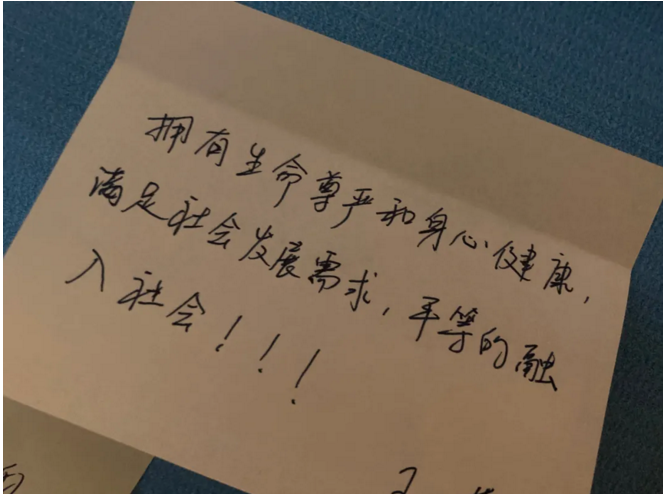 拥有生命尊严和身心健康,
满足社会发展需求,平等的融
入社会!!!